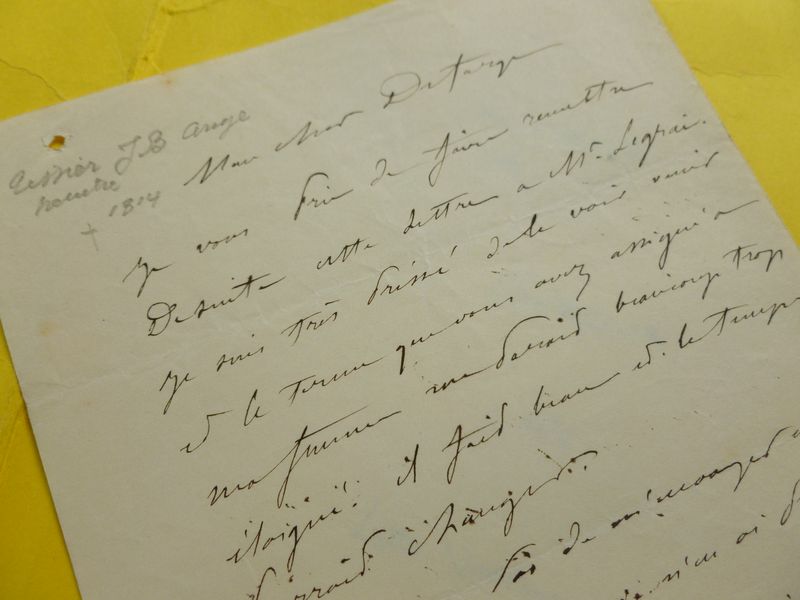 Tissier J B Ange
peintre
† 1814
Mon cher Detarge
je vous prie de faire remettre
Desuite cette lettre a Mr. Legrai.
je suis très préssé de le voir venir
et le terme que vous avez assigné a
ma femme me parroid beaucoup trop
éloigné. il faid beau et le temps
parroid changer.
pas de m'envoyer
je n'en ai